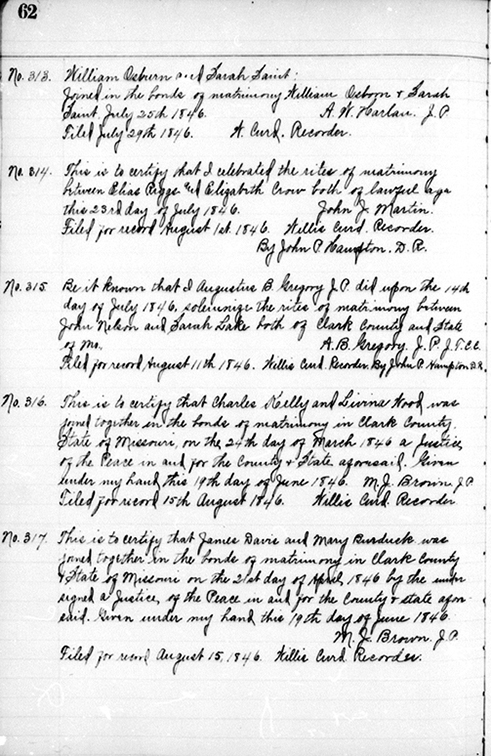 62
No. 313. William Osburn and Sarah Saint:
Joined in the bonds of matrimony William Osborn & Sarah
Saint, July 25th 1846. A. W. Harlan. J. P.
Filed July 29th 1846. W. Curd. Recorder.
No. 314. This is to certify that I celebrated the rites of matrimony
between Elias Riggs and Elizabeth Crow both of lawful age
this 23rd day of July 1846. John J. Martin.
Filed for record August 1st. 1846. Willis Curd. Recorder.
By John P. Hampton. D. R.
No. 315 Be it known that I Augustus B. Gregory J. P. did upon the 14th
day of July 1846, solemnize the rites of matrimony between
John Nelson and Sarah Lake both of Clark County and State
of Mo. A. B. Gregory, J. P. J. T. C. C.
Filed for record August 11th 1846. Willis Curd. Recorder. By John P. Hampton D. R.
No. 316. This is to certify that Charles Kelly and Livina Wood was
joined together in the bonds of matrimony in Clark County.
State of Missouri, on the 24th day of March 1846 a Justice
of the Peace in and for the County & State aforesaid. Given
under my hand this 19th day of June 1846. M. J. Brown. J. P.
Filed for record 15th August 1846. Willis Curd. Recorder
No. 317. This is to certify that James Davis and Mary Burduck was
joined together in the bonds of matrimony in Clark County
& State of Missouri on the 21st day of April, 1846 by the under
signed a Justice, of the Peace in and for the County & state afore-
said. Given under my hand this 19th day of June 1846.
M. J. Brown. J. P.
Filed for record August 15, 1846. Willis Curd Recorder.